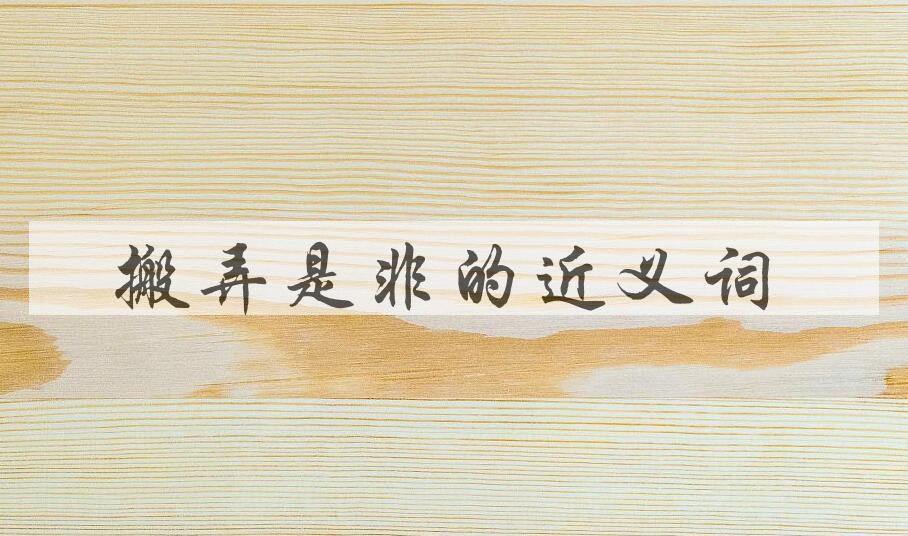 搬弄是非的近义词